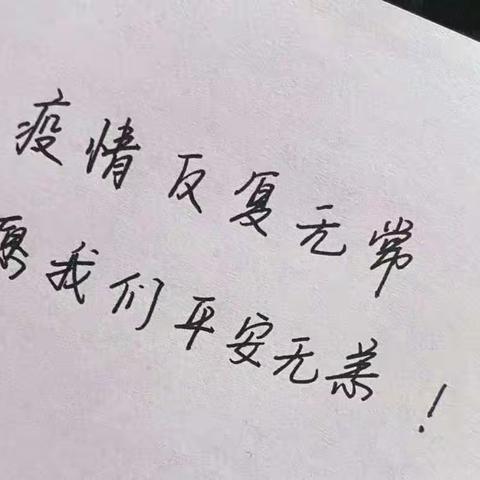 疫情反复无常
愿我们平安无恙！